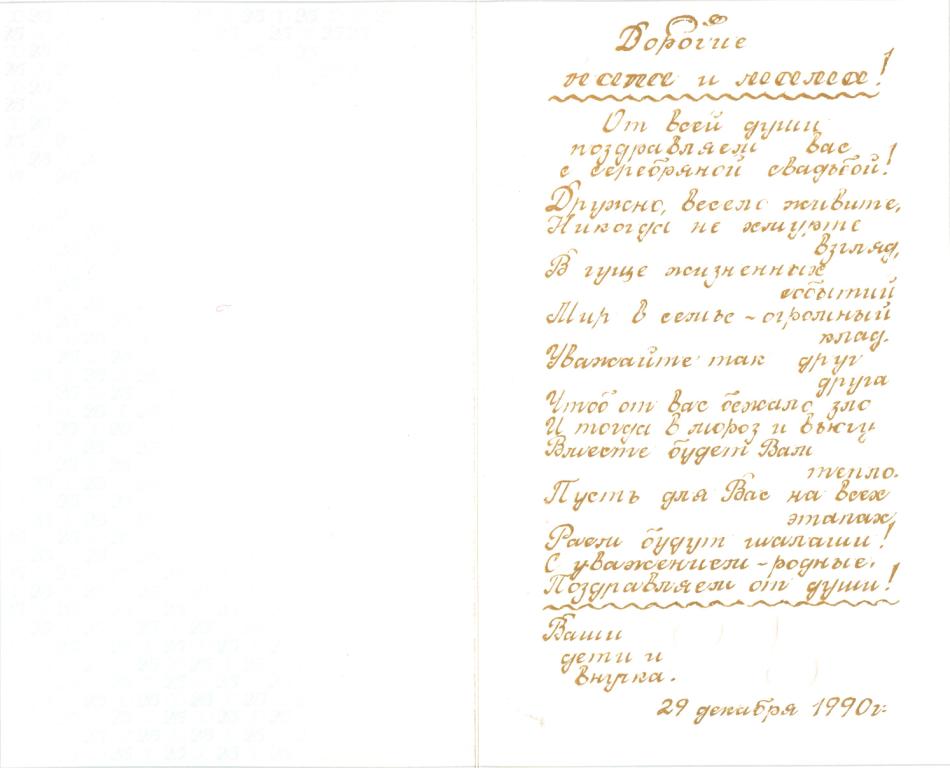 Дорогие
папа и мама!
От всей души
поздравляем вас
с серебряной свадьбой!
Дружно, весело живите,
Никогда не хмурьте
взгляд,
В гуще жизненных
событий
Мир в семье - огромный
клад.
Уважайте так друг
друга
Чтоб от вас бежало зло
И тогда в мороз и вьюгу
Вместе будет Вам
тепло.
Пусть для Вас на всех
этапах,
Раем будут шалаши!
С уважением - родные.
Поздравляем от души!
Ваши
дети и
внучка.
29 декабря 1990г.